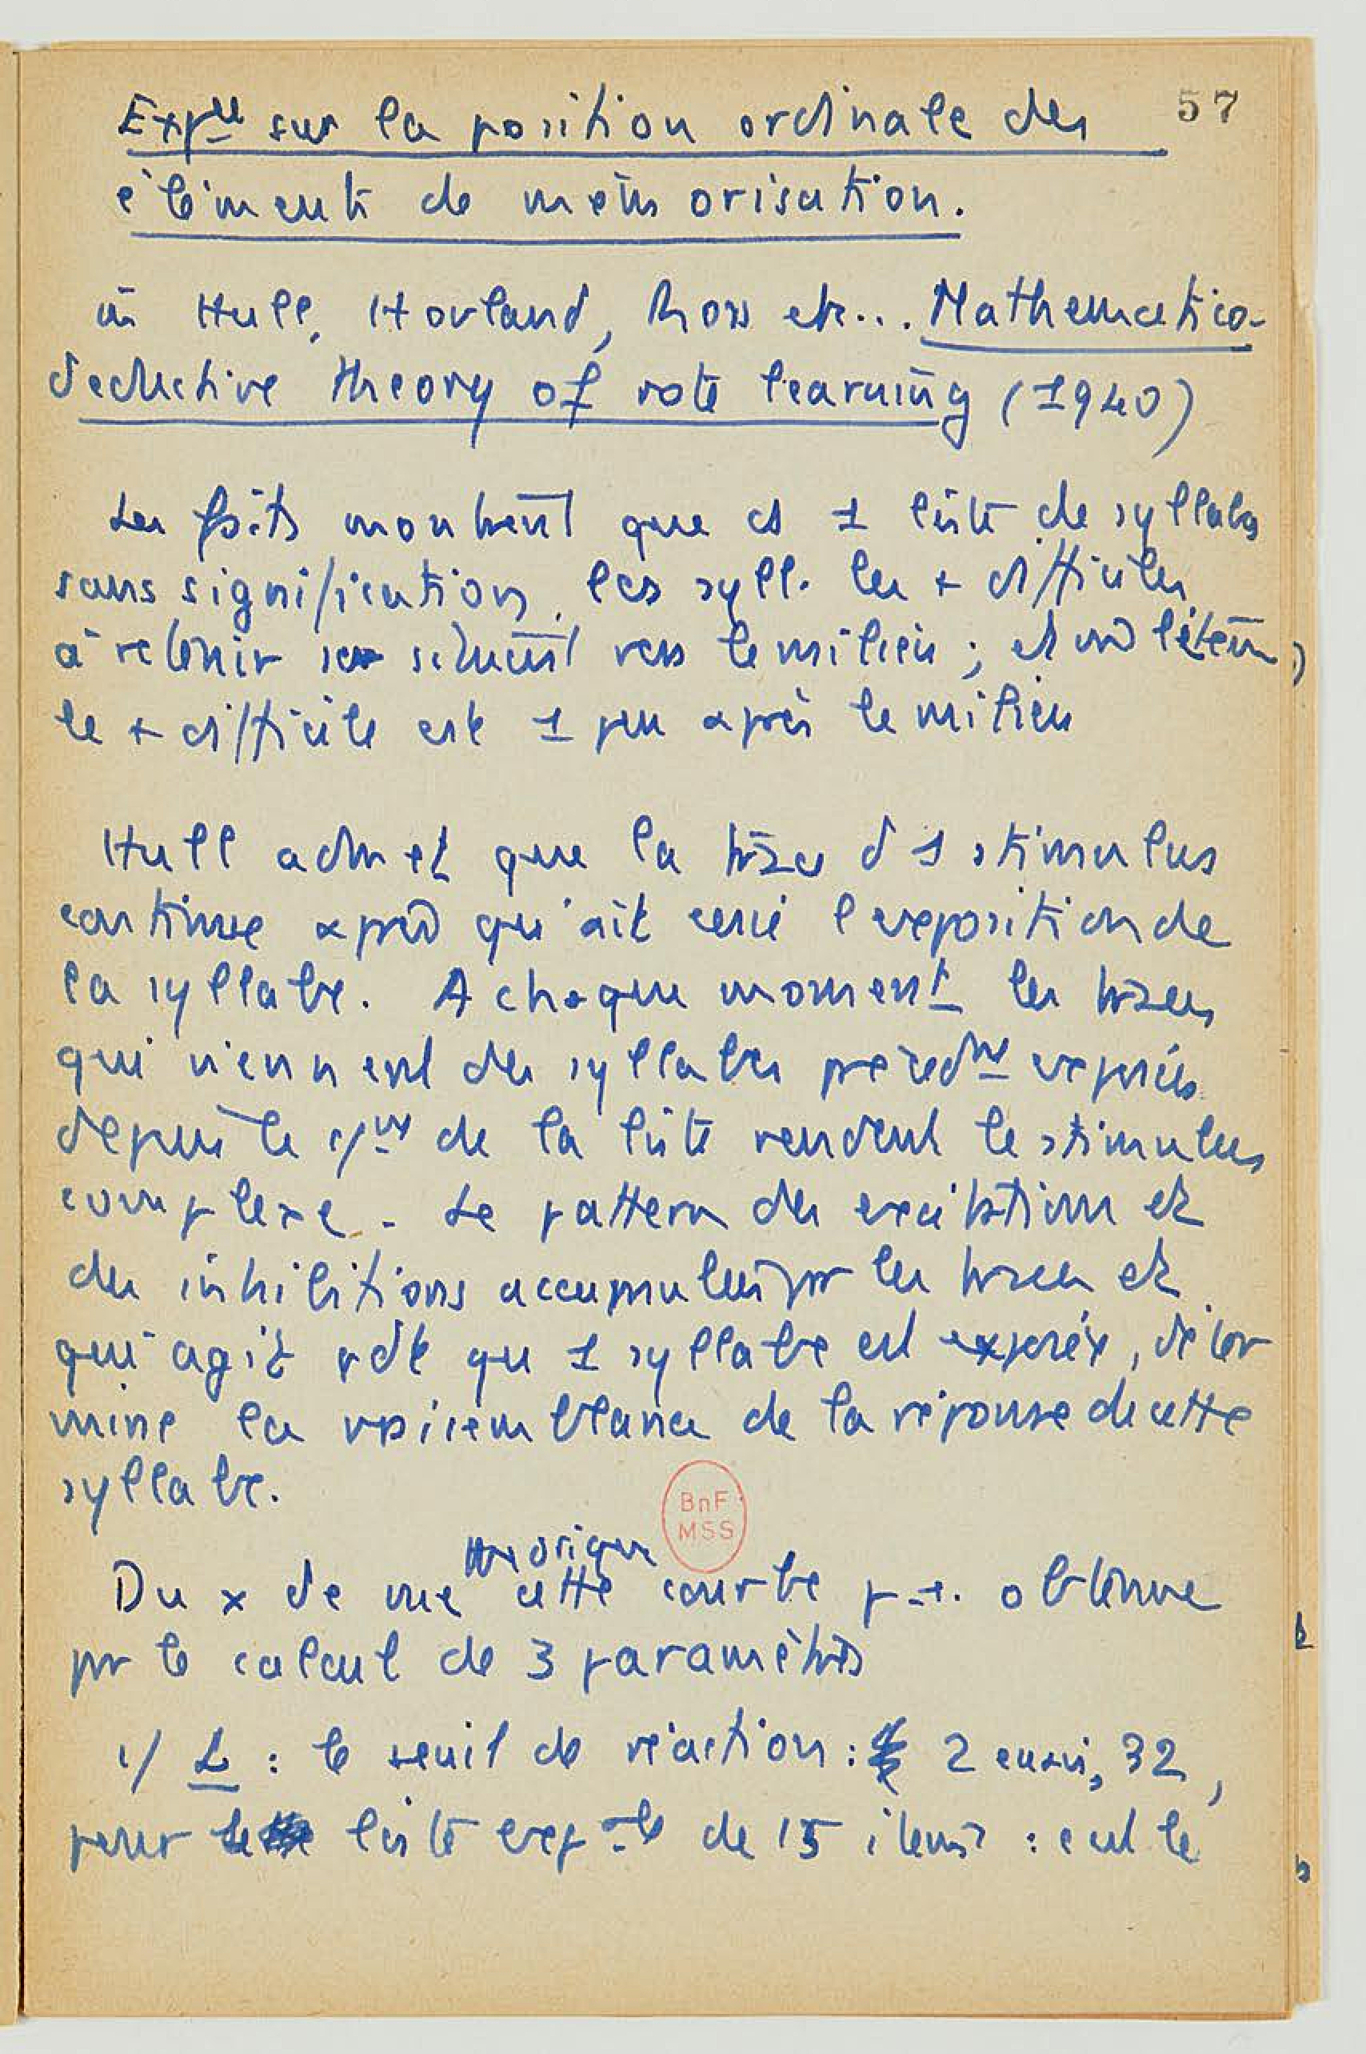 57
Exp^ce sur la position ordinale des
éléments de mémorisation.
in Hull, Hovland, Ross etc... Mathematico-
deductive theory of rote learning (1940)
Les faits montrent que ds 1 liste de syllabes
sans signification, les syll. les + difficiles
à retenir se situent vers le milieu ; et
le + difficile est 1 peu après le milieu
Hull admet que la trace d 1 stimulus
continue après qu'ait cessé l'exposition de
la syllabe. A chaque moment les traces
qui viennent des syllabes précéd^tes exposées
depuis le de la liste rendent le stimulus
complexe. Le pattern des excitations et
des inhibitions accumulées par les traces et
qui agit qu 1 syllabe est exposée, déter
mine la vraisemblance de la réponse de cette
syllabe.
BnF
MSS
Du x de vue cette courbe p. ê. obtenue
par le calcul de 3 paramètres
1/ L : le seuil de réaction : 2 32,
pour liste exp^le de 15 items : c est le